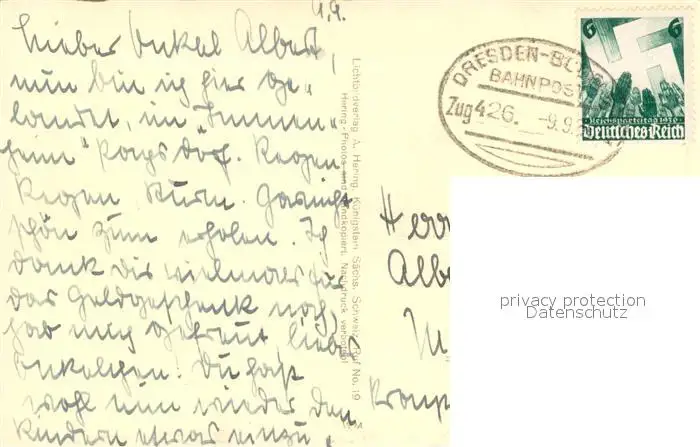 9.9.
Lieber Onkel Albert,
nun bin ich hier ge-
landet, im "Immen-
heim" Porschdorf. Regen
Regen Sturm. Garnicht
schön zum erholen. Ich
danke dir vielmals für
das Geldgeschenk noch,
hab mich gefreut liebes
Onkelchen. Du hast
wohl nun wieder den
Kindern etwas einzu-
Lichtbildverlag A. Hering, Königstein Sächs. Schweiz, Ruf No. 19
Hering-Photos sind handkopiert. Nachdruck verboten!
DRESDEN-BO
BAHNPOST
Zug 426
-9.9.
6 6
Reichsparteitag 1936
Deutsches Reich
Herr
Albe
privacy protection
Datenschutz